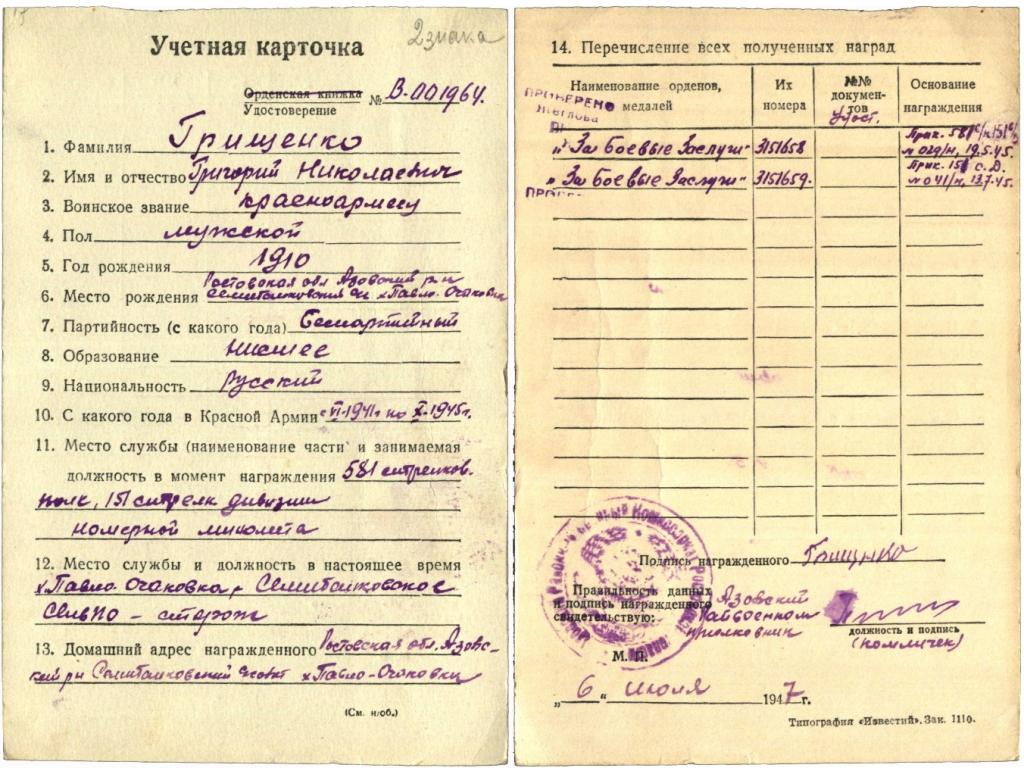 2 знака
Учетная карточка
Орденская книжка
Удостоверение № В-001964.
1. Фамилия Грищенко
2. Имя и отчество Григорий Николаевич
3. Воинское звание красноармеец
4. Пол мужской
5. Год рождения 1910
Ростовская обл Азовский р-н
6. Место рождения х Павло-Очаковка
7. Партийность (с какого года) беспартийный
8. Образование низшее
9. Национальность русский
10. С какого года в Красной Армии с VI-1941г по X-1945г.
11. Место службы (наименование части и занимаемая
должность в момент награждения 581 стрелков.
полк, 151 стрелк дивизии
номерной миномета
12. Место службы и должность в настоящее время
х Павло-Очаковка, Семибалковское
Сельпо - сторож
13. Домашний адрес награжденного Ростовская обл. Азовс-
кий р-н Семибалковский х Павло-Очаковка
(См. н/об.)
14. Перечисление всех полученных наград
Наименование орденов, медалей
Их номера
№№ документов
удост.
Основание награждения
ПРОВЕРЕНО
"За Боевые Заслуги" 3151658 Прик. 581 с/п 151 с/д
№ 029/н, 19.5.45.
"За Боевые Заслуги" 3151659. Прик. 151 с.д.
№ 041/н, 13.7.45.
Подпись награжденного Грищенко
Правильность данных
и подпись награжденного
свидетельствую:
Азовский
Райвоенком
полковник
должность и подпись
М. П.
„6" июля 1947 г.
Типография «Известий». Зак. 1110.